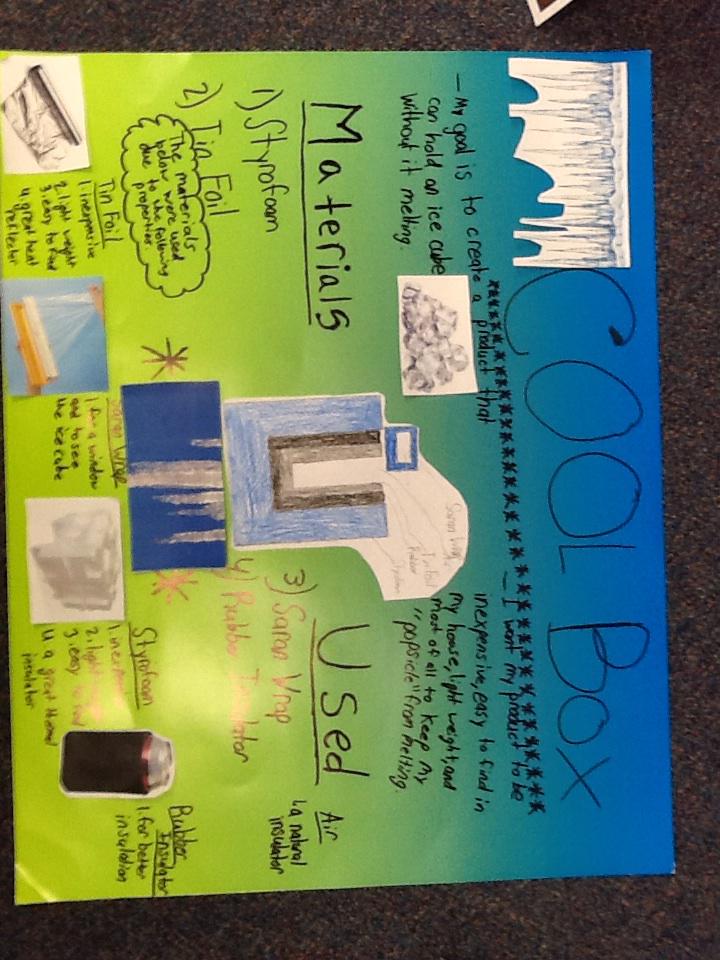 COOL BOX
— My goal is to create a product that
can hold an ice cube
without it melting.
— I want my product to be
inexpensive, easy to find in
my house, light weight, and
most of all to keep my
"popsicle" from melting.
Saran Wrap
Tin Foil
Rubber
Styrofoam
Materials Used
1) Styrofoam
2) Tin Foil
3) Saran Wrap
4) Rubber Insulator
Air
↳a natural
insulator
The materials
below were used
due to the following
properties
Tin Foil
1. inexpensive
2. light weight
3. easy to find
4. great heat
reflector
Saran Wrap
1. for a window
and to see
the ice cube
Styrofoam
1. inexpensive
2. light
3. easy to find
4. a great thermal
insulator
Rubber
Insulator
1. for better
insulation